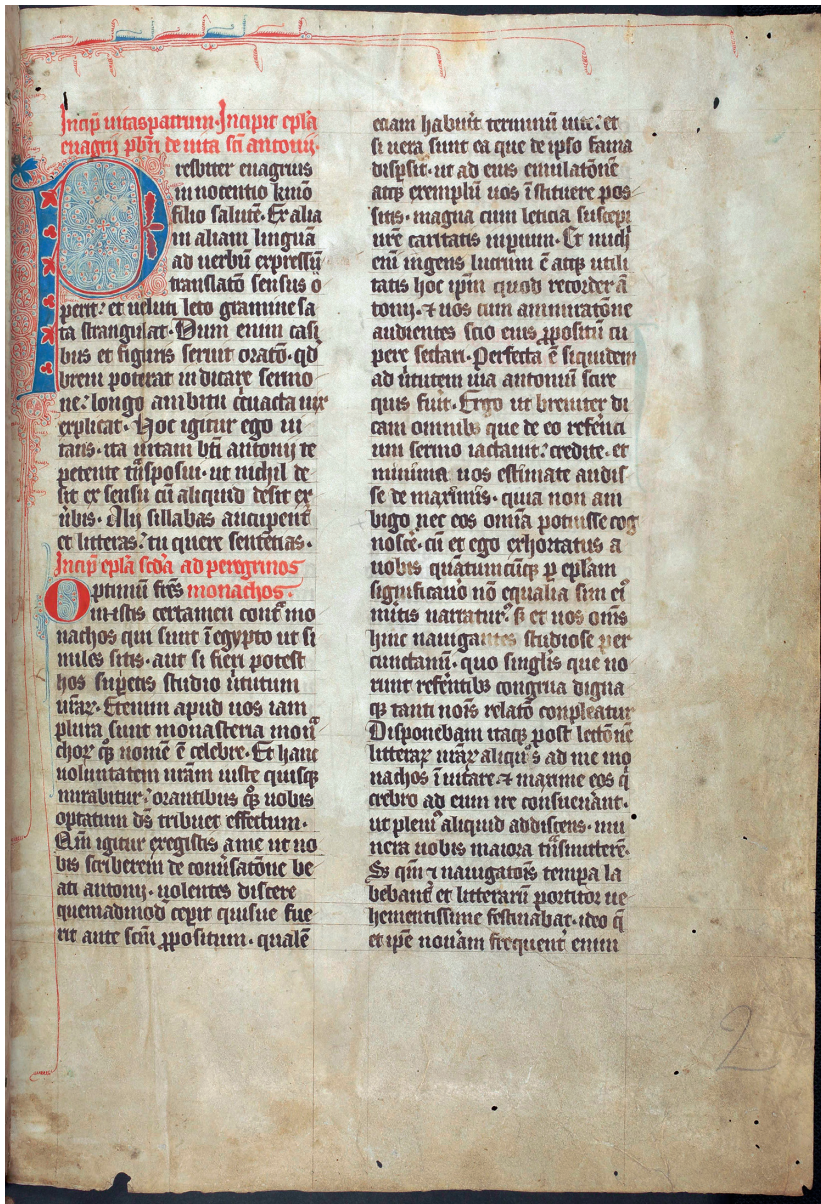 Incip̄ uitaspatrum · Incipit ep̄la
euagrij pb̄ri de uita sc̄i antonij ·
Presbiter euagrius
innocentio k̄mo
filio salutē · Ex alia
in aliam linguā
ad uerbū expressū
translat̄o sensus o
perit : et ueluti leto gramine sa
ta strangulat · Dum enim casi
bus et figuris seruit orat̄o · qd̄
breui poterat indicare sermo
ne : longo ambitu c̄cuacta uix
explicat · Hoc igitur ego ui
tans · ita uitam bt̄i antonij te
petente t̄nsposui · ut nichil de
sit ex sensu cū aliquid desit ex
u̓bis · Alij sillabas aucupent̓
et litteras : tu quere sentētias ·
Incip̄ ep̄la sc̄da ad peregrinos
Optimū fr̄es monachos ·
inistis certamen contᵃ mo
nachos qui sunt ī egypto ut si
miles sitis · aut si fieri potest
hos sup̄etis studio u̓tutum
ur̄aꝝ · Etenim apud uos iam
plura sunt monasteria monᵃ
choꝝ qꝫ nomē ē celebre · Et hanc
uoluntatem ur̄am iuste quisqꝫ
mirabitur : orantibus qꝫ uobis
optatum ds̄ tribuet effectum ·
Qm̄ igitur exegistis a me ut uo
bis scriberem de conu̓sat̄one be
ati antonij · uolentes discere
quemadmod̓ cep̓it quisue fue
rit ante sc̄m ꝓpositum · qualē
etiam habuit̓ terminū uite : et
si uera sunt ea que de ipso fama
disp̓sit · ut ad eius emulat̄onē
atqꝫ exemplū uos īstituere pos
sitis · magna cum leticia suscepi
ur̄e caritatis inp̓ium · Et michi
eni̅ ingens lucrum ē atqꝫ utili
tatis hoc ip̄m quod recordor ā
tonij · ⁊ uos cum ammirat̄one
audientes scio eius ꝓpositū cu
pere sectari · Perfecta ē siquidem
ad u̓tutem uia antoniū scire
quis fuit · Ergo ut breuiter di
cam omnibꝫ que de eo refe̓nci
um sermo iactauit : credite · et
minima uos estimate audis
se de maximis · quia non am
bigo nec eos omīa potuisse cog
nosc̓e · cū et ego exhortatus a
uobis quātumcūqꝫ p ep̄lam
significauo̓ nō equalia sint ei᷒
m̓itis narratur᷒ · s̓ et uos om̄s
hinc nauigantes studiose per
cunctamī · quo singl̓is que no
runt refe̓ntibꝫ congrua digna
qꝫ tanti nois̄ relat̄o conpleatur
Disponebam itaqꝫ post lect̄onē
litteraꝝ ur̄aꝝ aliquo̓s ad me mo
nachos īuitare · ⁊ maxime eos q̓
crebro ad eum ire consueue̓ant ·
ut pleni᷒ aliquid addiscens · mu
nera uobis maiora t̄nsmitterē ·
S̓ꝫ qm̄ ⁊ nauigatois̄ tempa la
bebant̓ et litterarū portitor ue
hementissime festinabat · ideo q̄
et ip̄e nou̓am frequent̓ enim
2